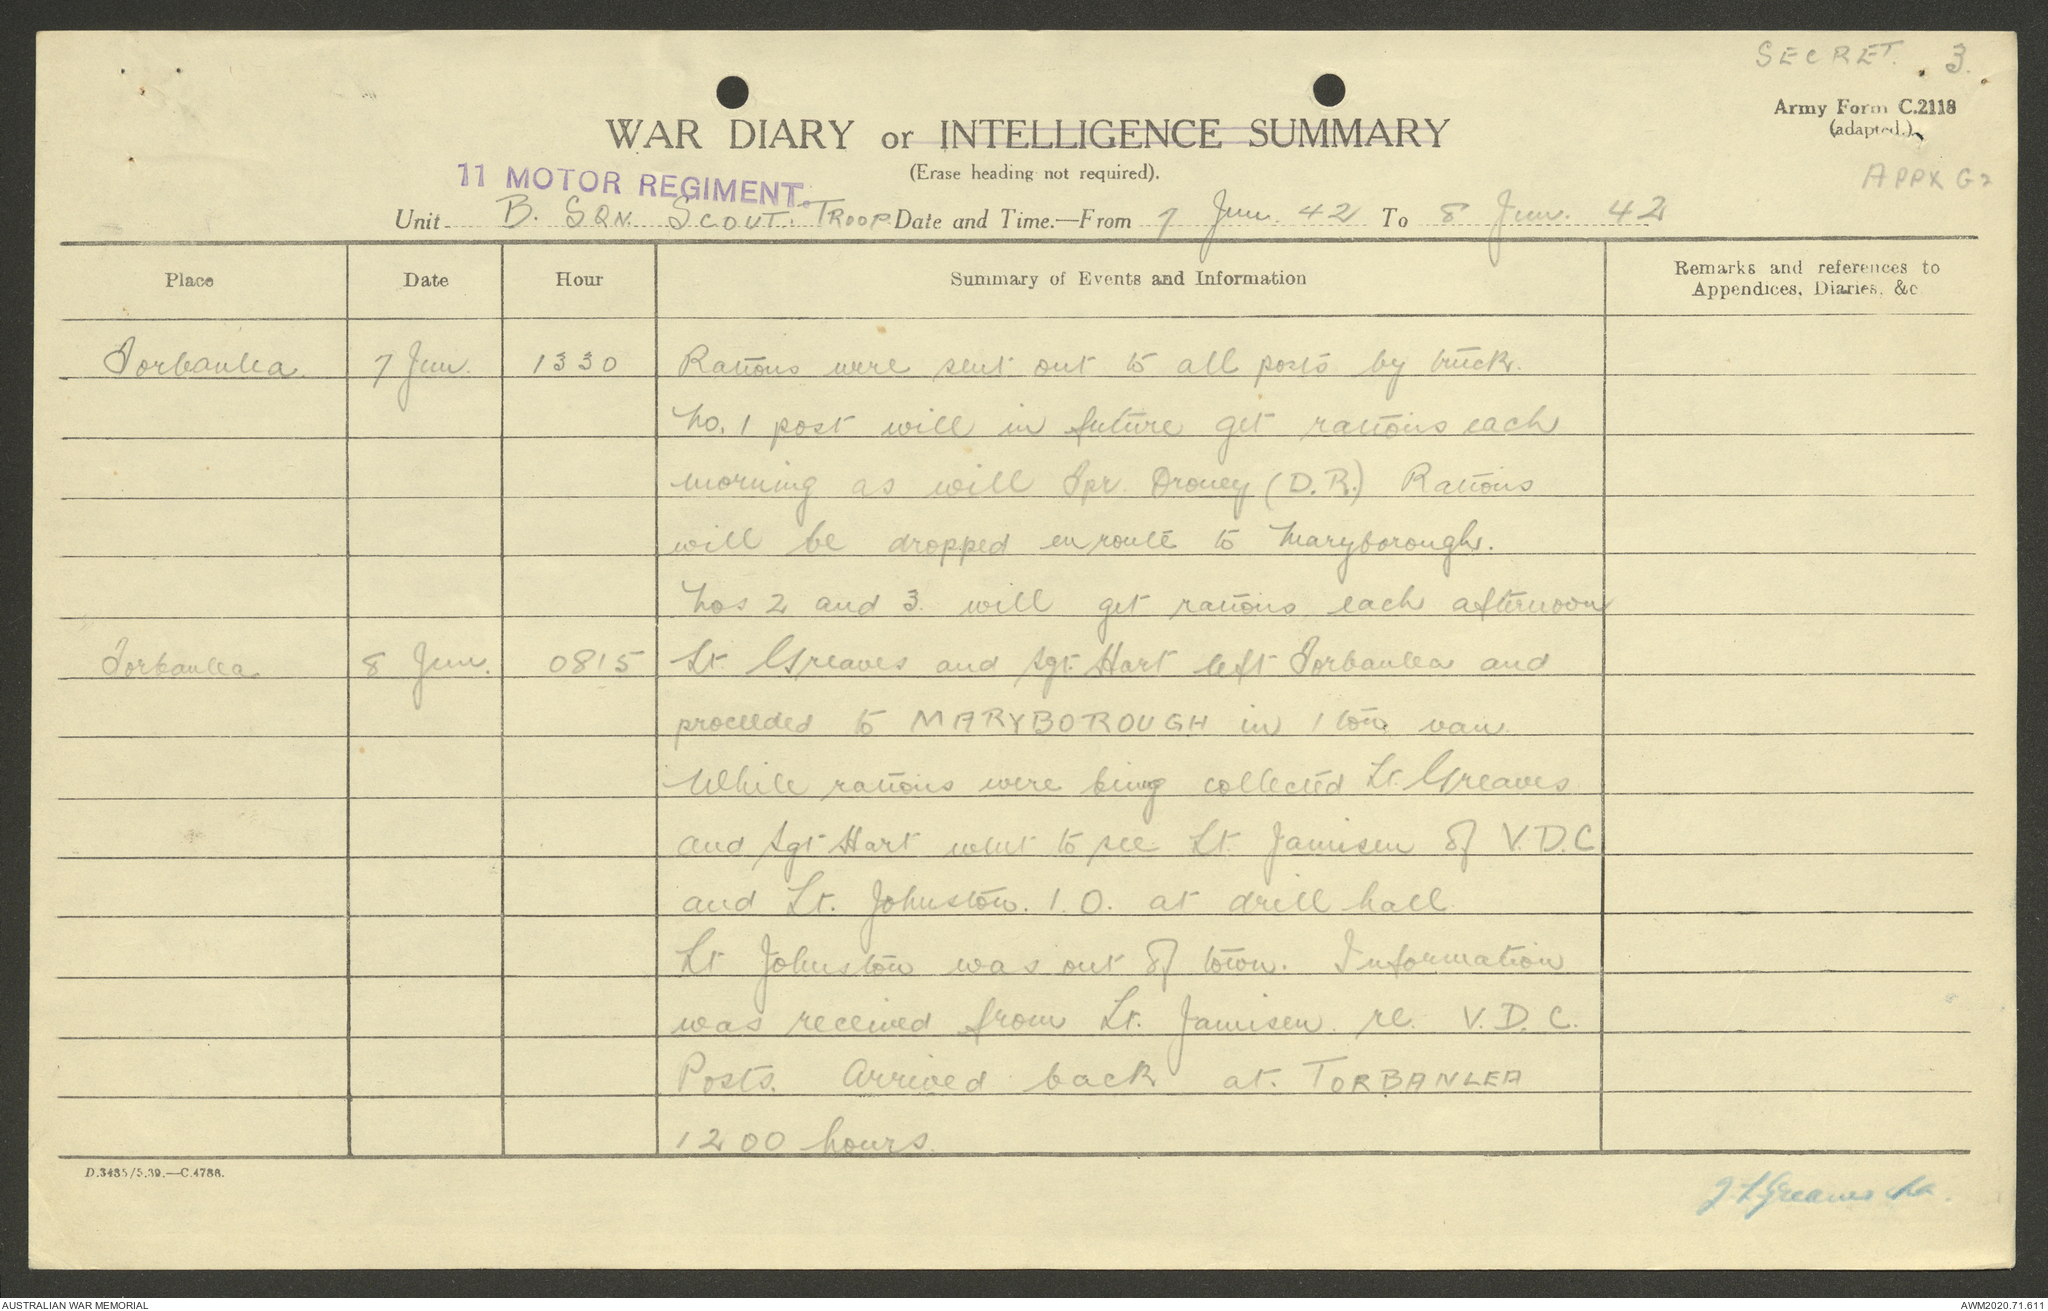 SECRET. 3.
Army Form C.2118
(adapted.)
WAR DIARY or INTELLIGENCE SUMMARY
(Erase heading not required).
APPX G2
11 MOTOR REGIMENT.
Unit B. SQN. SCOUT. TROOP Date and Time.—From 7 Jun. 42 To 8 Jun. 42
Place Date Hour Summary of Events and Information Remarks and references to
Appendices, Diaries, &c
Torbanlea. 7 Jun. 1330 Rations were sent out to all posts by truck.
No. 1 post will in future get rations each
morning as will Spr. Droney (D.R.) Rations
will be dropped enroute to Maryborough.
Nos 2 and 3. will get rations each afternoon
Torbanlea 8 Jun. 0815 Lt. Greaves and Sgt. Hart left Torbanlea and
proceeded to MARYBOROUGH in 1 ton van.
While rations were being collected Lt. Greaves
and Sgt Hart went to see Lt. Jamisen of V.D.C
and Lt. Johnston. I.O. at drill hall.
Lt Johnston was out of town. Information
was received from Lt. Jamisen. re. V.D.C.
Posts. Arrived back at. TORBANLEA
1200 hours.
D.3435/5.39.—C.4786.
Greaves Lt.
AUSTRALIAN WAR MEMORIAL
AWM2020.71.611